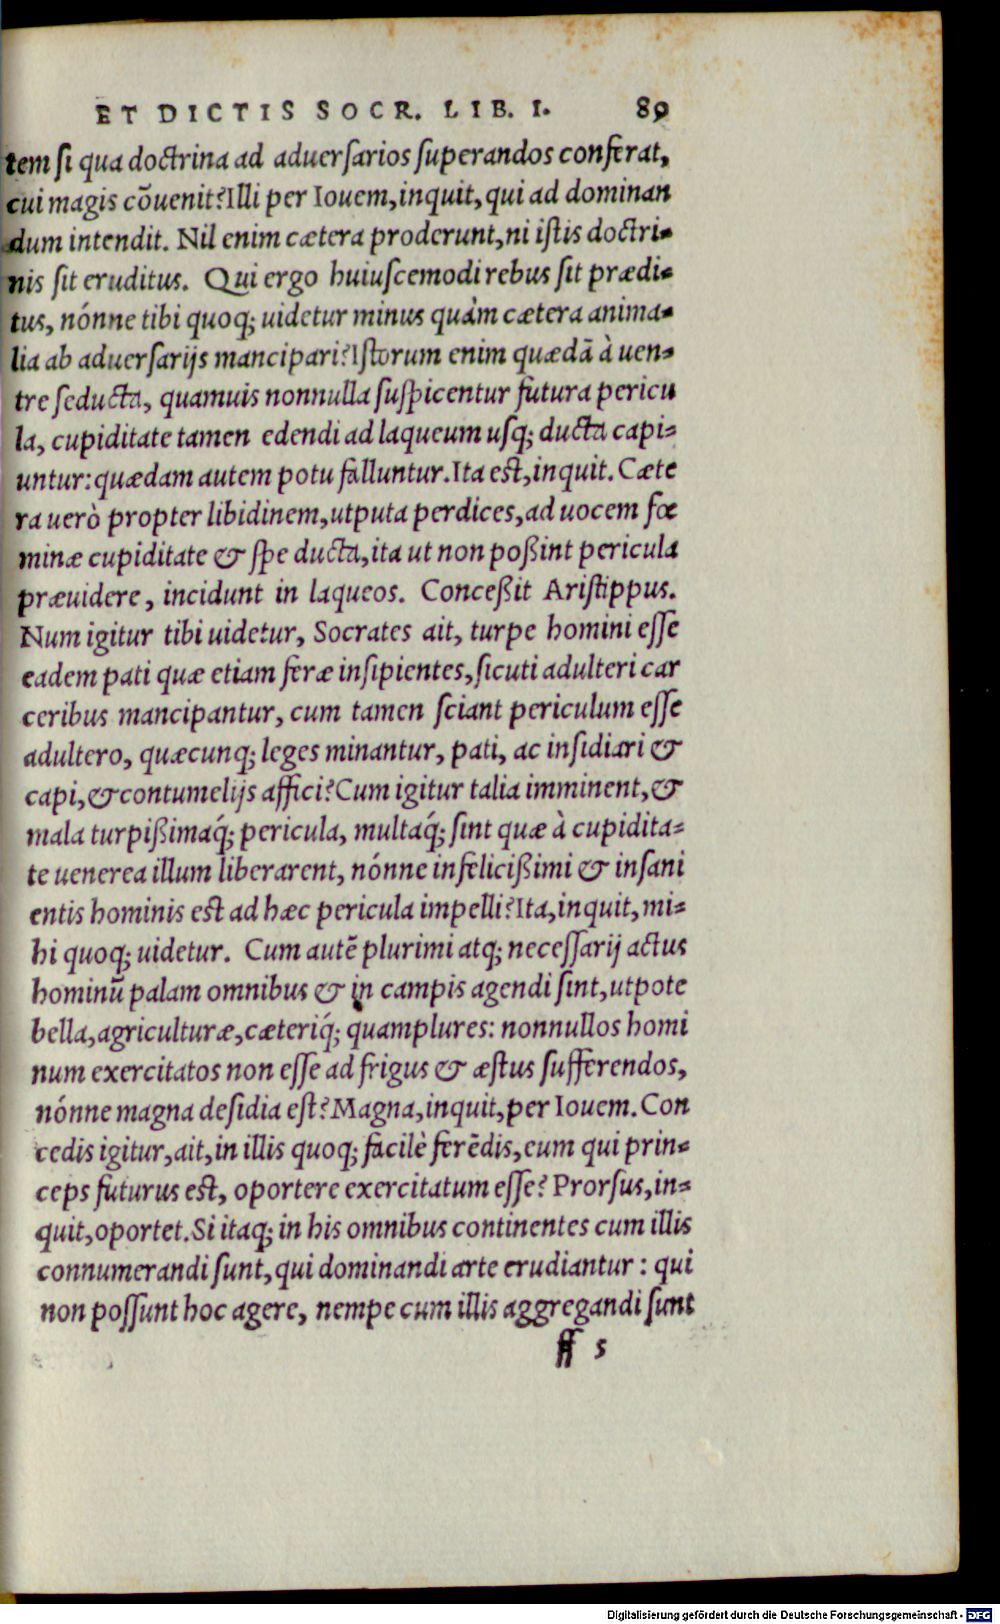 ET DICTIS SOCR. LIB. I. 89
tem ſi qua doctrina ad aduerſarios ſuperandos conferat,
cui magis cōuenit? Illi per Iouem, inquit, qui ad dominan
dum intendit. Nil enim cætera proderunt, ni iſtis doctri-
nis ſit eruditus. Qui ergo huiuſcemodi rebus ſit prædi-
tus, nónne tibi quoq; uidetur minus quàm cætera anima-
lia ab aduerſarijs mancipari? Iſtorum enim quædā à uen-
tre ſeducta, quamuis nonnulla ſuſpicentur futura pericu
la, cupiditate tamen edendi ad laqueum uſq; ducta capi-
untur: quædam autem potu falluntur. Ita eſt, inquit. Cæte
ra uerò propter libidinem, utputa perdices, ad uocem fœ
minæ cupiditate & ſpe ducta, ita ut non poßint pericula
præuidere, incidunt in laqueos. Conceßit Ariſtippus.
Num igitur tibi uidetur, Socrates ait, turpe homini eſſe
eadem pati quæ etiam feræ inſipientes, ſicuti adulteri car
ceribus mancipantur, cum tamen ſciant periculum eſſe
adultero, quæcunq; leges minantur, pati, ac inſidiari &
capi, & contumelijs affici? Cum igitur talia imminent, &
mala turpißimaq́; pericula, multaq́; ſint quæ à cupidita-
te uenerea illum liberarent, nónne infelicißimi & inſani
entis hominis eſt ad hæc pericula impelli? Ita, inquit, mi-
hi quoq; uidetur. Cum autē plurimi atq; neceſſarij actus
hominū palam omnibus & in campis agendi ſint, utpote
bella, agriculturæ, cæteriq́; quamplures: nonnullos homi
num exercitatos non eſſe ad frigus & æſtus ſufferendos,
nónne magna deſidia eſt? Magna, inquit, per Iouem. Con
cedis igitur, ait, in illis quoq; facilè ferēdis, eum qui prin-
ceps futurus eſt, oportere exercitatum eſſe? Prorſus, in-
quit, oportet. Si itaq; in his omnibus continentes cum illis
connumerandi ſunt, qui dominandi arte erudiantur: qui
non poſſunt hoc agere, nempe cum illis aggregandi ſunt
ff 5
Digitalisierung gefördert durch die Deutsche Forschungsgemeinschaft - DFG